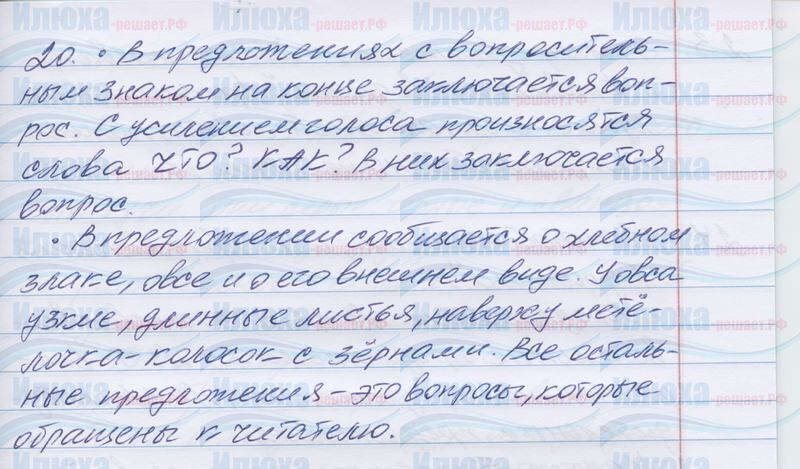 20. • В предложениях с вопроситель-
ным знаком на конце заключается воп-
рос. С усилением голоса произносятся
слова ЧТО? КАК? В них заключается
вопрос.
• В предложении сообщается о хлебном
злаке, овсе и о его внешнем виде. У овса
узкие, длинные листья, наверху метё-
лочка-колосок с зёрнами. Все осталь-
ные предложения - это вопросы, которые
обращены к читателю.